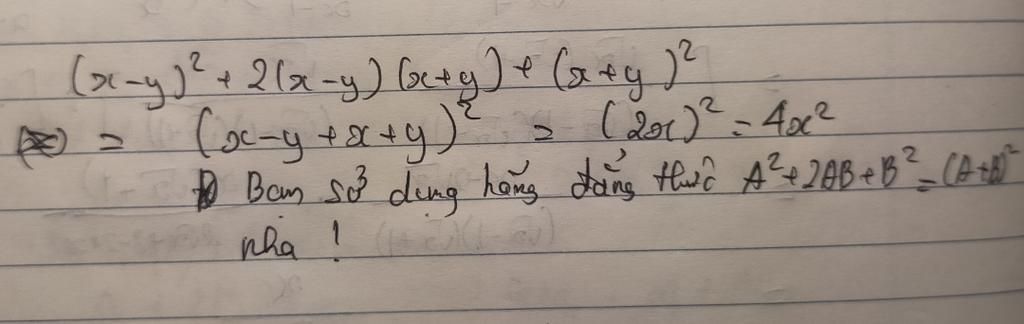 (x-y)² + 2(x-y)(x+y) + (x+y)²
= (x-y+x+y)² = (2x)² = 4x²
Bạn sử dụng hằng đẳng thức A²+2AB+B²=(A+B)²
nha !